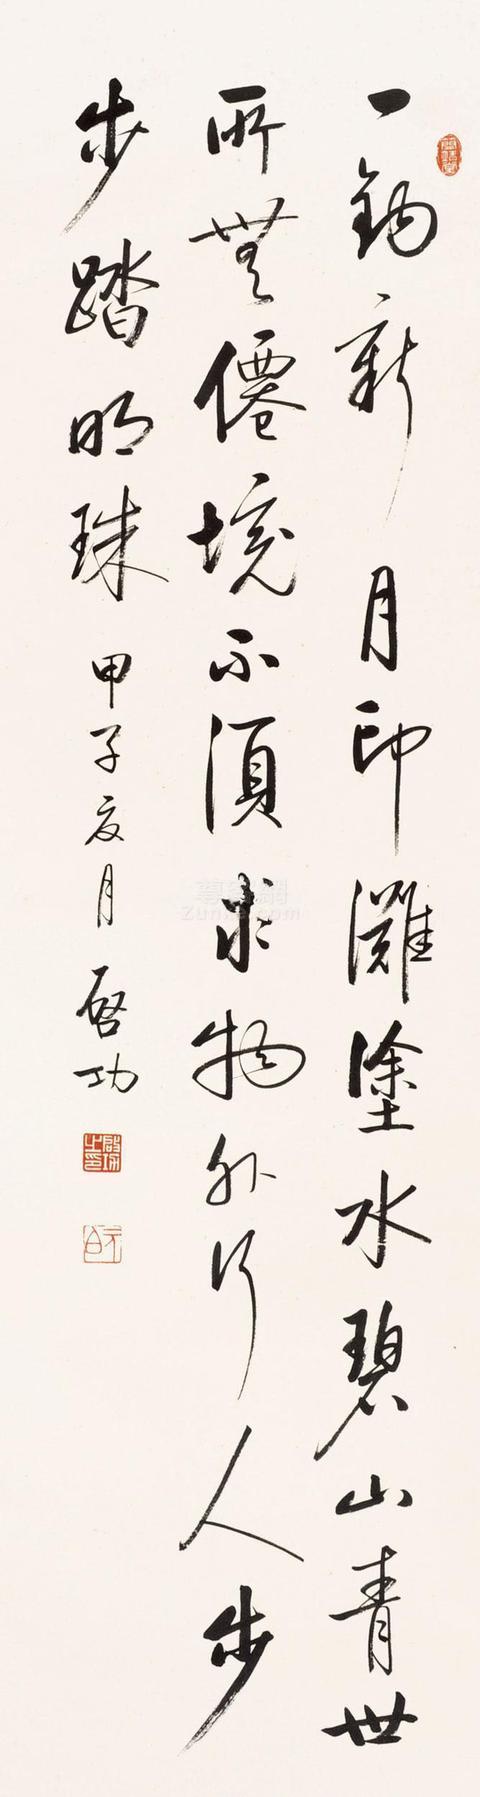 一鈎新月印灘塗水碧山青世
所無僊境不須求物外行人步
步踏明珠
甲子夏月
啓功
啟功之印
尊客網
Zunke.com